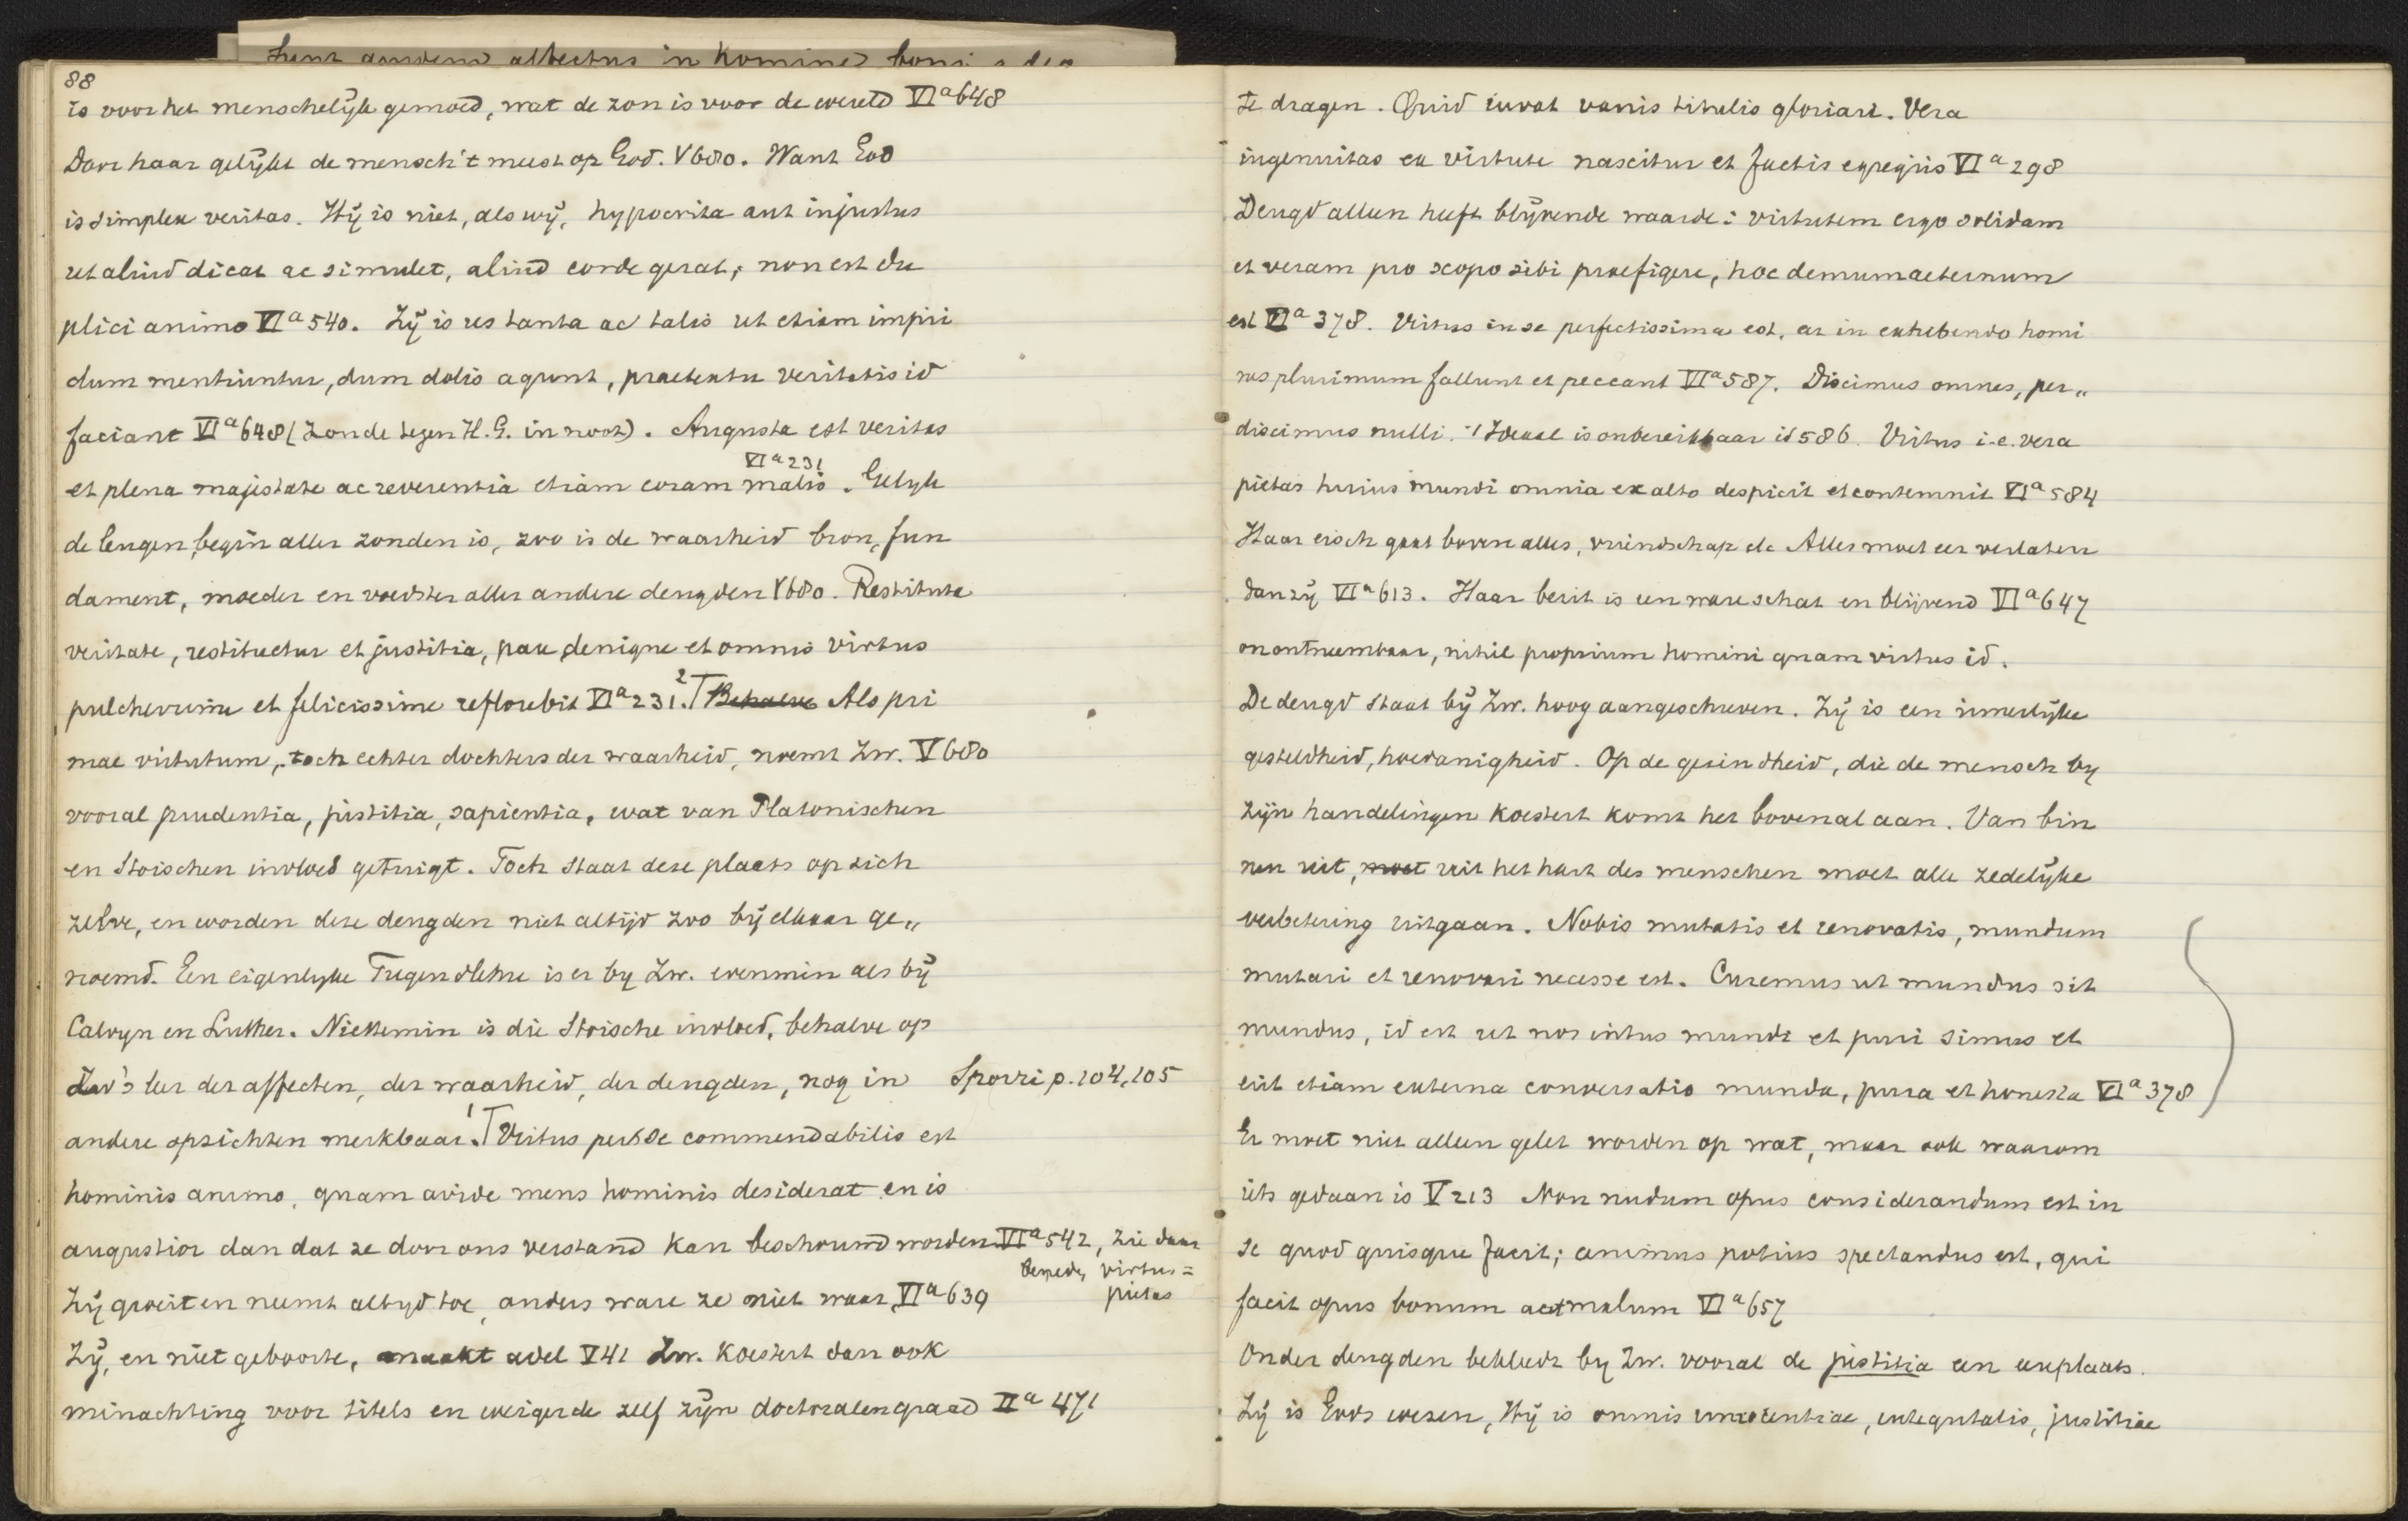 88
is voor het menschelijk gemoed, wat de zon is voor de wereld VIa 648
Door haar gelijkt de mensch 't meest op God. V 680. Want God
is simplex veritas. Hij is niet, als wij, hypocrita aut injustus
ut aliud dicat ac simulet, aliud corde gerat; non est du
plici animo VIa 540. Zij is res tanta ac talis ut etiam impii
dum mentiuntur, dum dolis agunt, praetextu veritatis id
faciant VIa 648 (Zonde tegen H. G. in noot). Augusta est veritas
VIa 231
et plena majestate ac reverentia etiam coram malis. Gelijk
de leugen begin aller zonden is, zoo is de waarheid bron, fun
dament, moeder en voedster aller andere deugden V 680. Restituta
veritate, restituetur et justitia, pax denique et omnis virtus
pulcherrime et felicissime reflorebit VIa 231. 2 Behalve Als pri
mae virtutum, toch echter dochters der waarheid, noemt Zw. V 680
vooral prudentia, justitia, sapientia, wat van Platonischen
en Stoischen invloed getuigt. Toch staat deze plaats op zich
zelve, en worden deze deugden niet altijd zoo bij elkaar ge„
noemd. Een eigenlyke Tugendlehre is er by Zw. evenmin als bij
Calvyn en Luther. Niettemin is die Stoische invloed, behalve op
Zw's leer der affecten, der waarheid, der deugden, nog in Sporri p. 104, 105
andere opzichten merkbaar. 1 Virtus per se commendabilis est
hominis animo, quam avide mens hominis desiderat en is
augustior dan dat ze door ons verstand kan beschouwd worden VIa 542, zie daar
beneden virtus =
pietas
Zij groeit en neemt altyd toe, anders ware ze niet waar VIa 639
Zij, en niet geboorte, maakt adel V 41 Zw. koestert dan ook
minachting voor titels en weigerde zelf zijn doctoralen graad IIa 471
te dragen. Quid iuvat vanis titulis gloriari. Vera
ingenuitas ex virtute nascitur et factis egregiis VIa 298
Deugd alleen heeft blijvende waarde: virtutem ergo solidam
et veram pro scopo sibi praefigere, hoc demum aeternum
est VIa 378. Virtus in se perfectissima est, at in exhibendo homi
nes plurimum fallunt et peccant VIa 587. Discimus omnes, per„
discimus nulli. 't Ideaal is onbereikbaar id 586. Virtus i.e. vera
pietas huius mundi omnia ex alto despicit et contemnit VIa 584
Haar eisch gaat boven alles, vriendschap etc Alles moet eer verlaten
dan zij VIa 613. Haar bezit is een ware schat en blijvend VIa 647
onontneembaar, nihil proprium homini quam virtus id.
De deugd staat bij Zw. hoog aangeschreven. Zij is een innerlijke
gesteldheid, hoedanigheid. Op de gezindheid, die de mensch by
zijn handelingen koestert komt het bovenal aan. Van bin
nen uit, moet uit het hart des menschen moet alle zedelijke
verbetering uitgaan. Nobis mutatis et renovatis, mundum
mutari et renovari necesse est. Curemus ut mundus sit
mundus, id est ut nos intus mundi et puri simus et
erit etiam externa conversatio munda, pura et honesta VIa 378
Er moet niet alleen gelet worden op wat, maar ook waarom
iets gedaan is V 213 Non nudum opus considerandum est in
se quod quisque facit; animus potius spectandus est, qui
facit opus bonum aut malum VIa 657
Onder deugden bekleedt by Zw. vooral de justitia een eereplaats.
Zij is Gods wezen, Hij is omnis innocentiae, integritatis, justitiae